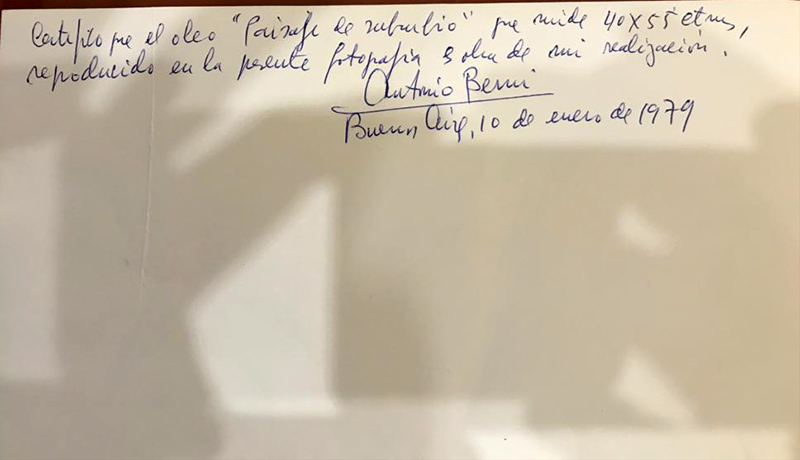 Certifico que el oleo "Paisaje de suburbio" que mide 40 x 55 ctms,
reproducido en la presente fotografia es obra de mi realización.
Antonio Berni
Buenos Aires, 10 de enero de 1979